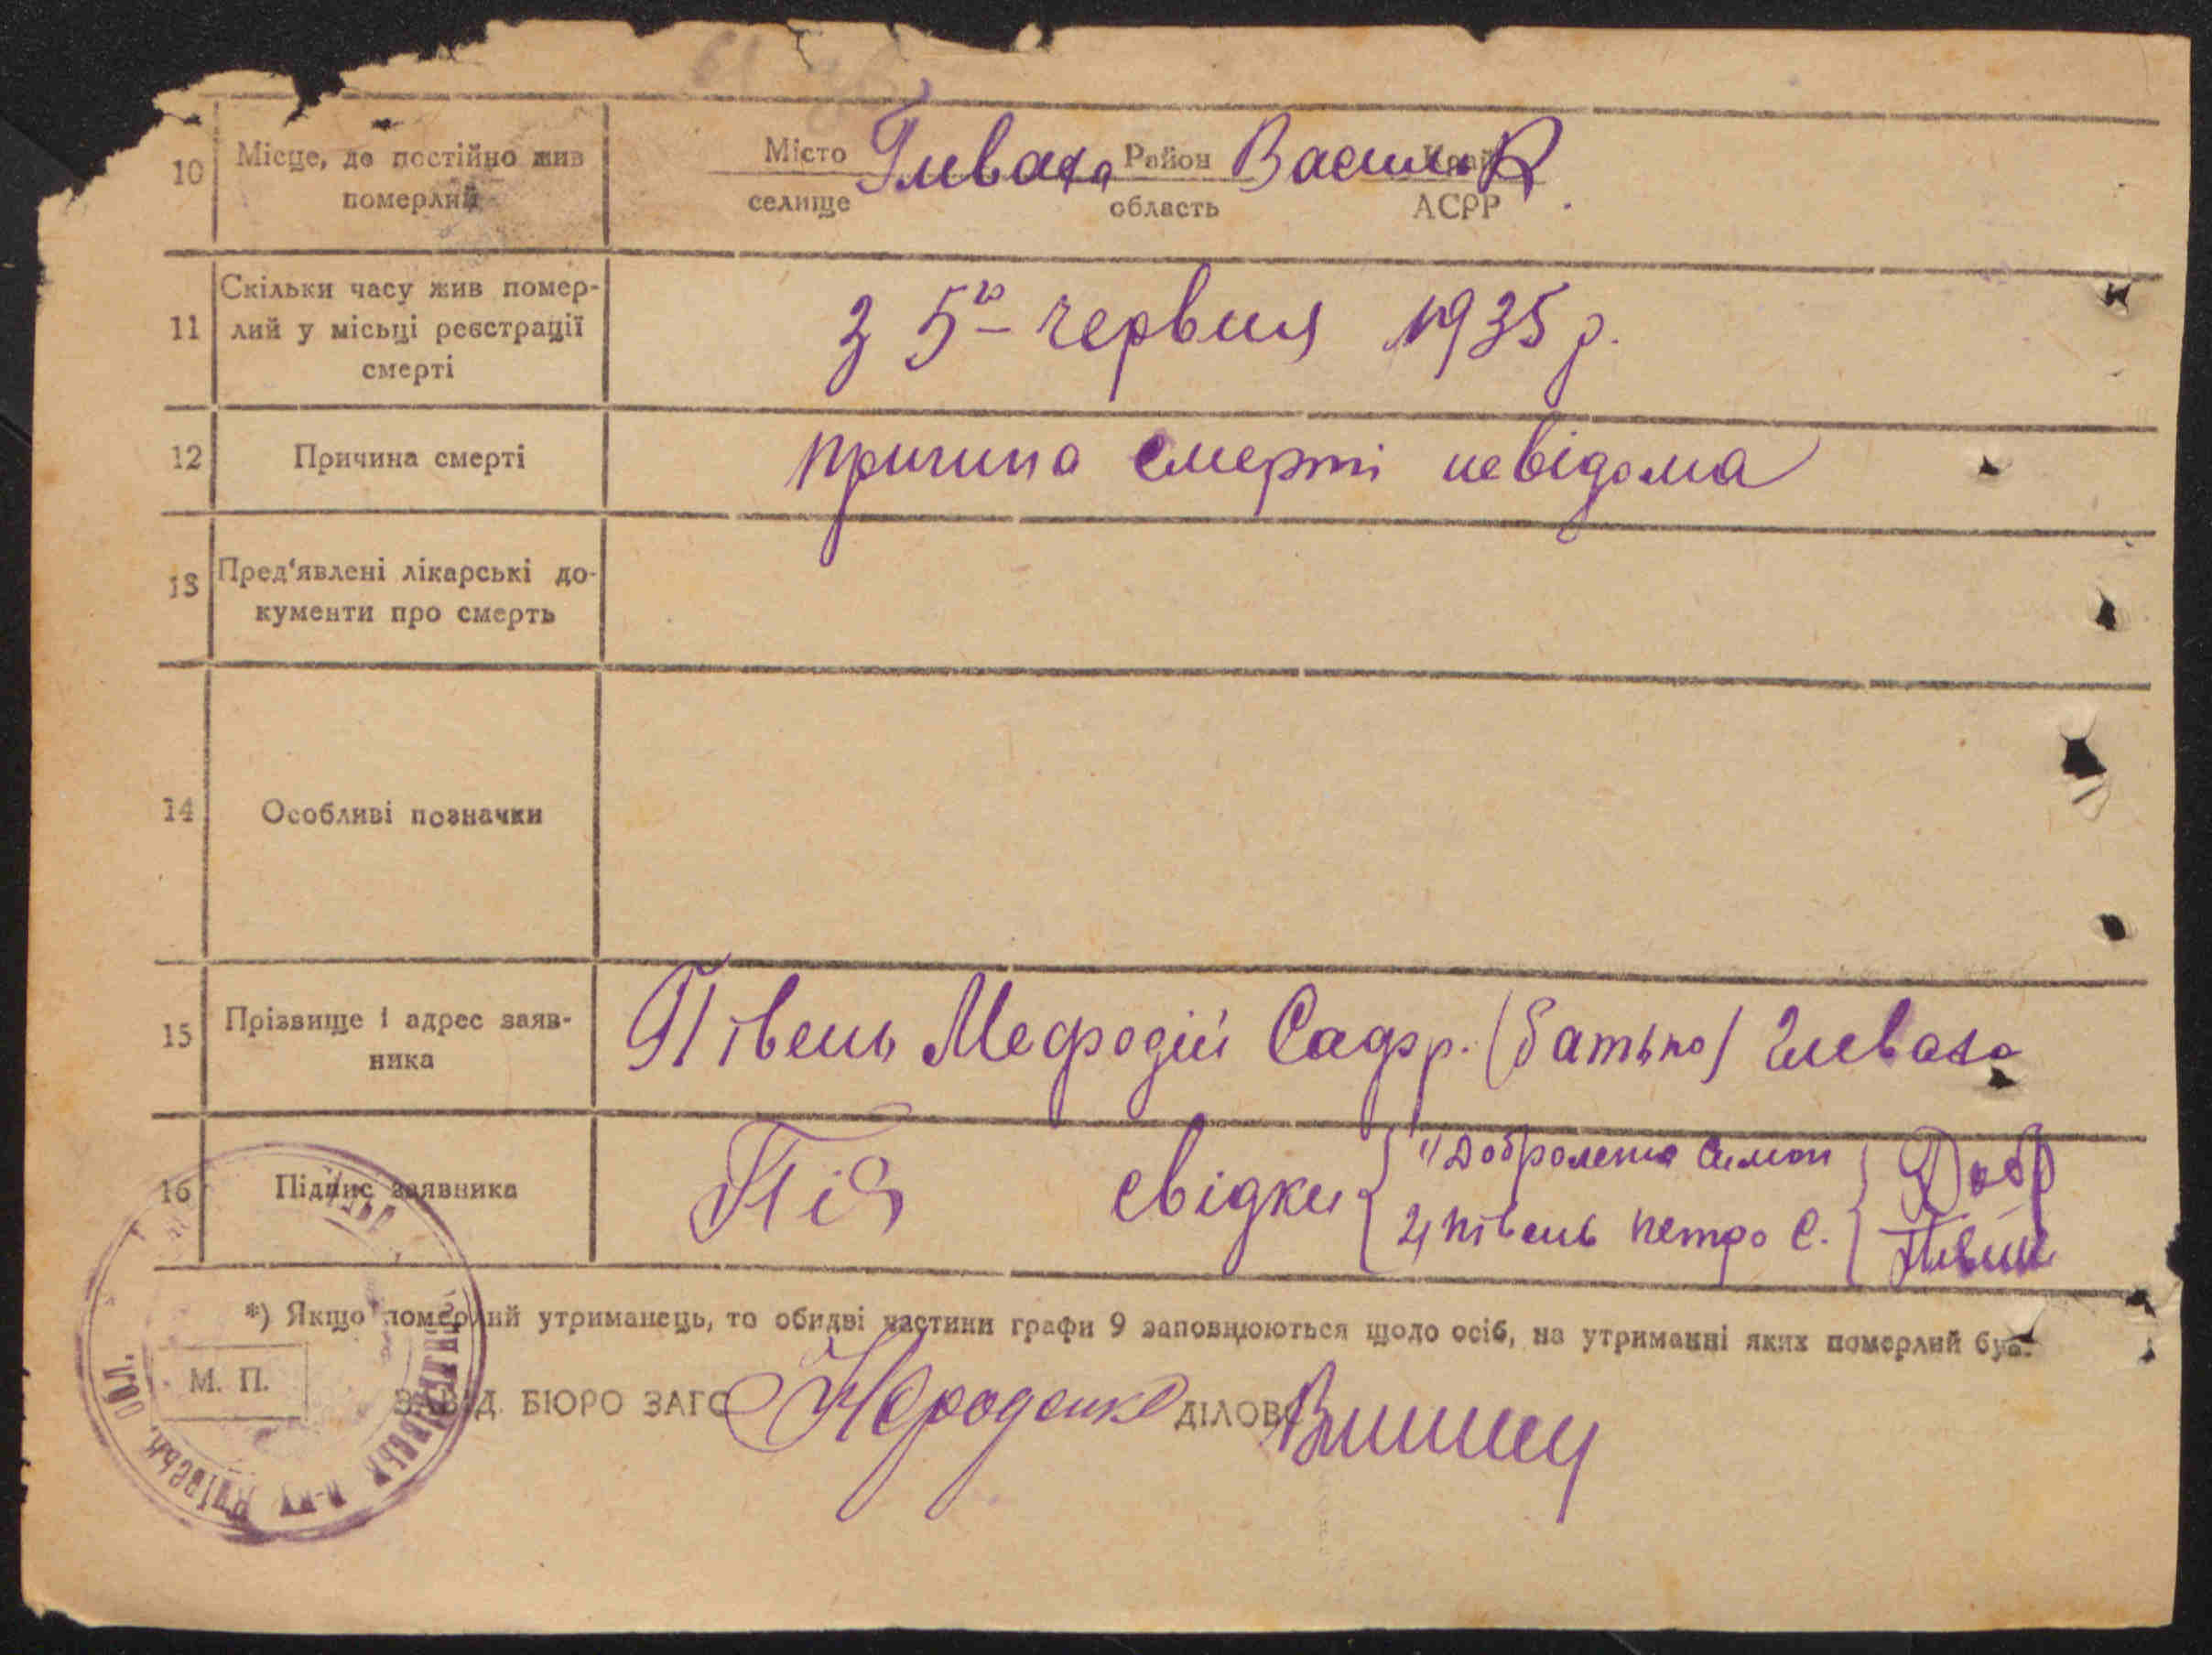 10 Місце, де постійно жив померлий
Місто селище Глеваха Район область Васильк. Край АСРР
11 Скільки часу жив помер-
лий у місьці реєстрації
смерті
З 5го червня 1935 р.
12 Причина смерті
причина смерті невідома
13 Пред'явлені лікарські до-
кументи про смерть
14 Особливі позначки
15 Прізвище і адрес заяв-
ника
Півень Мефодій Сафр. (батько) Глеваха
16 Підпис заявника
Пів свідки
1) Добролежа Симон Добр
2) Півень Петро С. Півень
*) Якщо померлий утриманець, то обидві частини графи 9 заповнюються щодо осіб, на утриманні яких померлий був.
М. П.
ЗАВІД. БЮРО ЗАГС ДІЛОВОД
Київськ. обл.